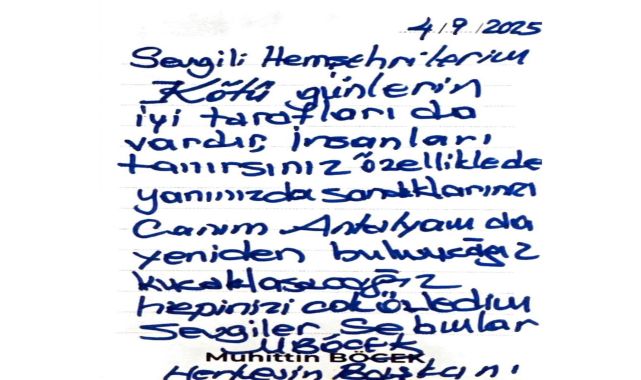 4/9/2025
Sevgili Hemşehrilerim
Kötü günlerin
iyi tarafları da
vardır, insanları
tanırsınız özellikle de
yanınızda sandıklarınızı
Canım Antalyam da
yeniden buluşacağız
kucaklaşacağız
hepinizi çok özledim
Sevgiler Selamlar
M BÖCEK
Muhittin BÖCEK
Herkesin Başkanı